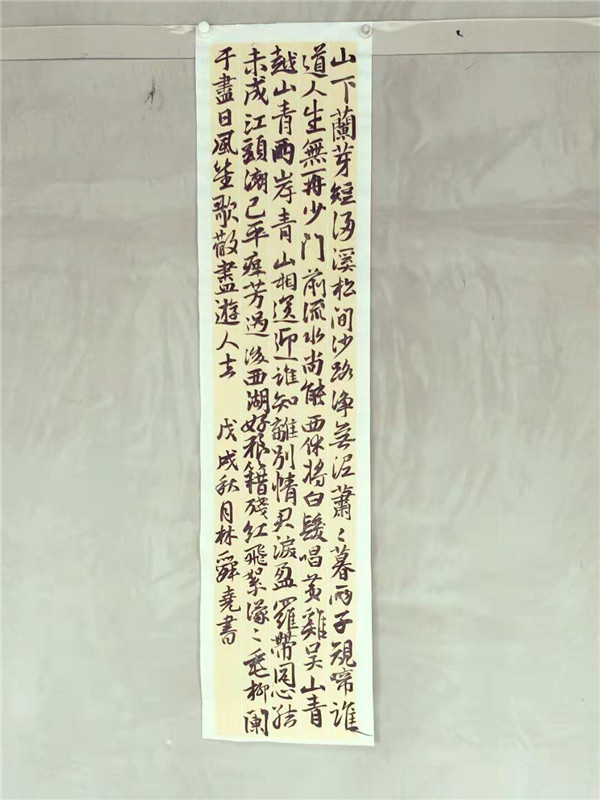 山下蘭芽短浸溪松间沙路净無泥蕭〻暮雨子規啼誰
道人生無再少门前流水尚能西休將白髮唱黄雞吴山青
越山青兩岸青山相送迎誰知離別情君淚盈羅帶同心结
未成江頭潮已平群芳過後西湖好狼籍殘紅飛絮濛〻垂柳闌
干盡日風笙歌散盡遊人去
戊戌秋月林舜堯書